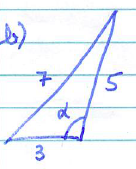 b)
7
5
α
3